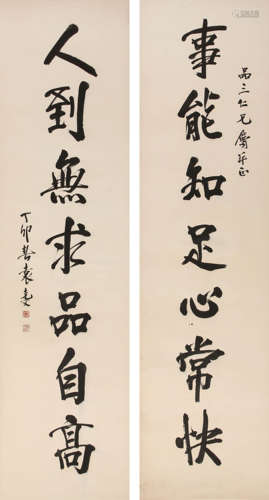 品三仁兄屬並正
事能知足心常快
人到無求品自高
丁卯暮袁